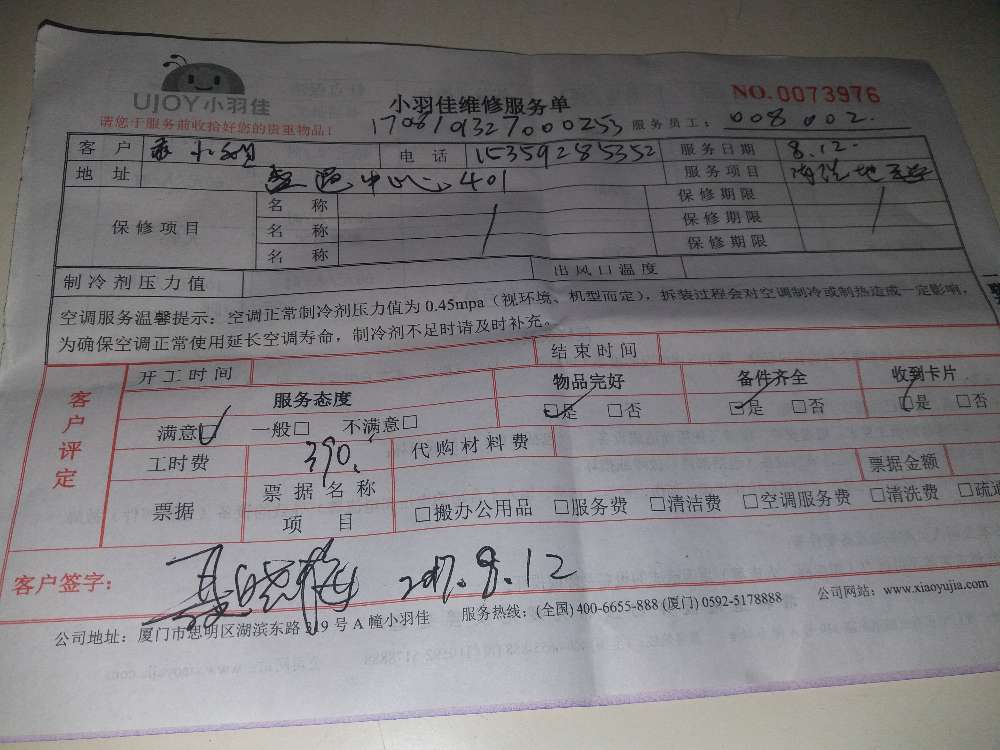 UJOY小羽佳
小羽佳维修服务单
NO.0073976
请您于服务前收拾好您的贵重物品!
170810327000253
服务员工: 008 002.
客户 小姐 电话 15359285352 服务日期 8.12.
地址 中心401 服务项目
保修项目 名称 保修期限
名称 保修期限
名称 保修期限
制冷剂压力值 出风口温度
空调服务温馨提示:空调正常制冷剂压力值为 0.45mpa(视环境、机型而定),拆装过程会对空调制冷或制热造成一定影响,
为确保空调正常使用延长空调寿命,制冷剂不足时请及时补充。
客户评定
开工时间 结束时间
服务态度 物品完好 备件齐全 收到卡片
满意□ 一般□ 不满意□ □是 □否 □是 □否 □是 □否
工时费 390. 代购材料费
票据 票据名称 票据金额
项目 □搬办公用品 □服务费 □清洁费 □空调服务费 □清洗费 □疏通
客户签字: 2017.8.12
公司地址:厦门市思明区湖滨东路 319 号 A 幢小羽佳 服务热线:(全国) 400-6655-888 (厦门) 0592-5178888 公司网站:www.xiaoyujia.com